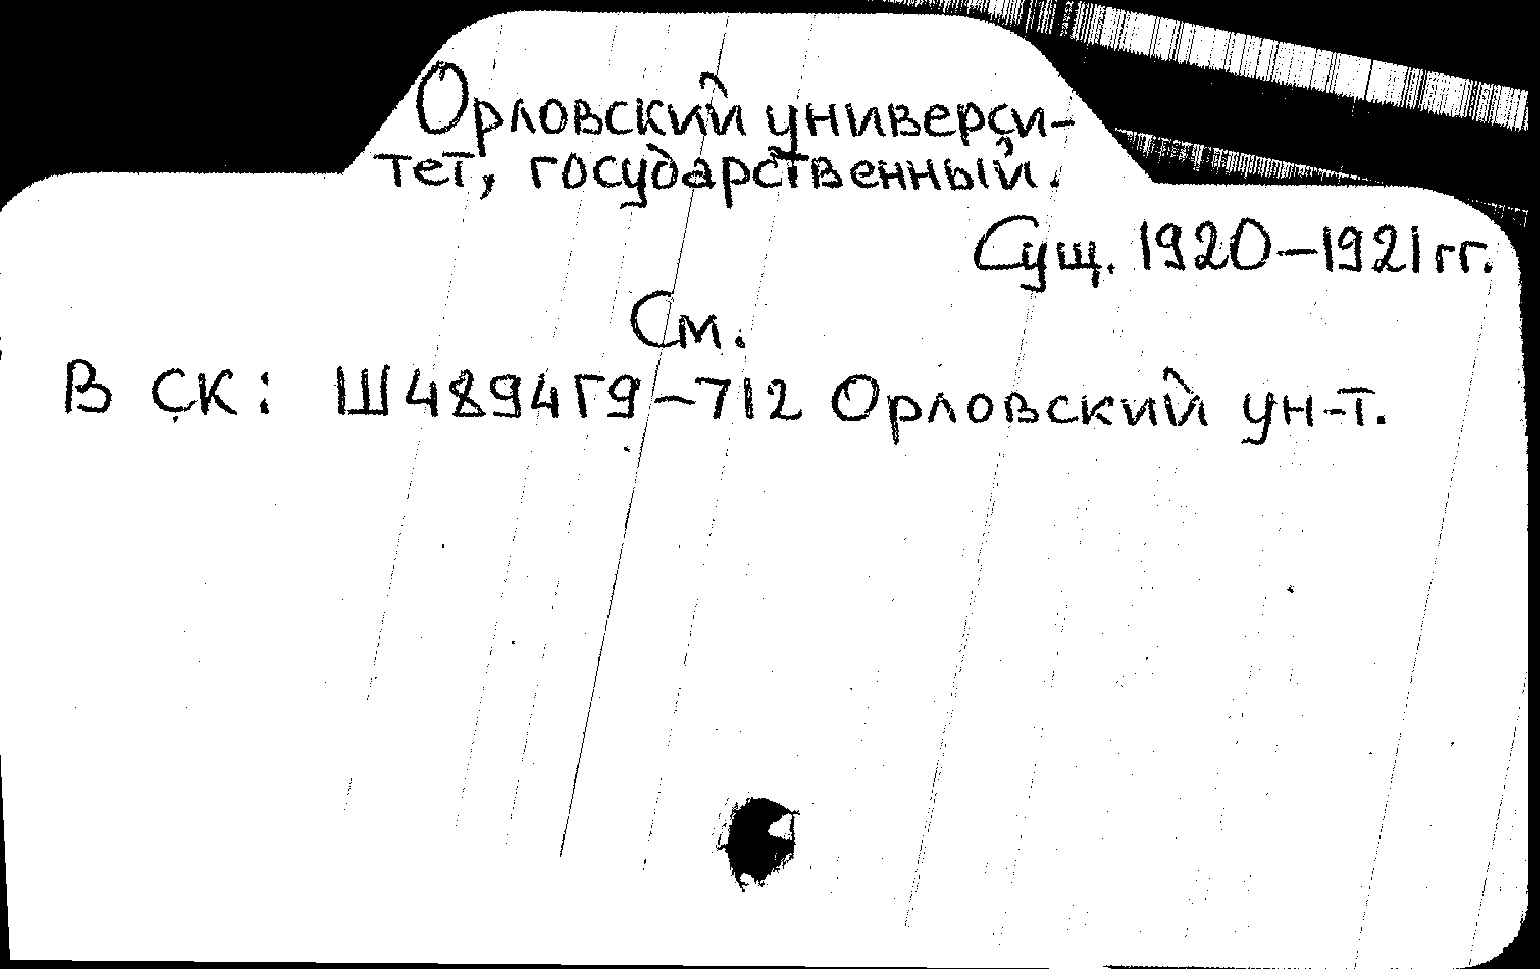 Орловский универси-
тет, государственный.
Сущ. 1920-1921 гг.
См.
В СК: Ш4894Г9-712 Орловский ун-т.